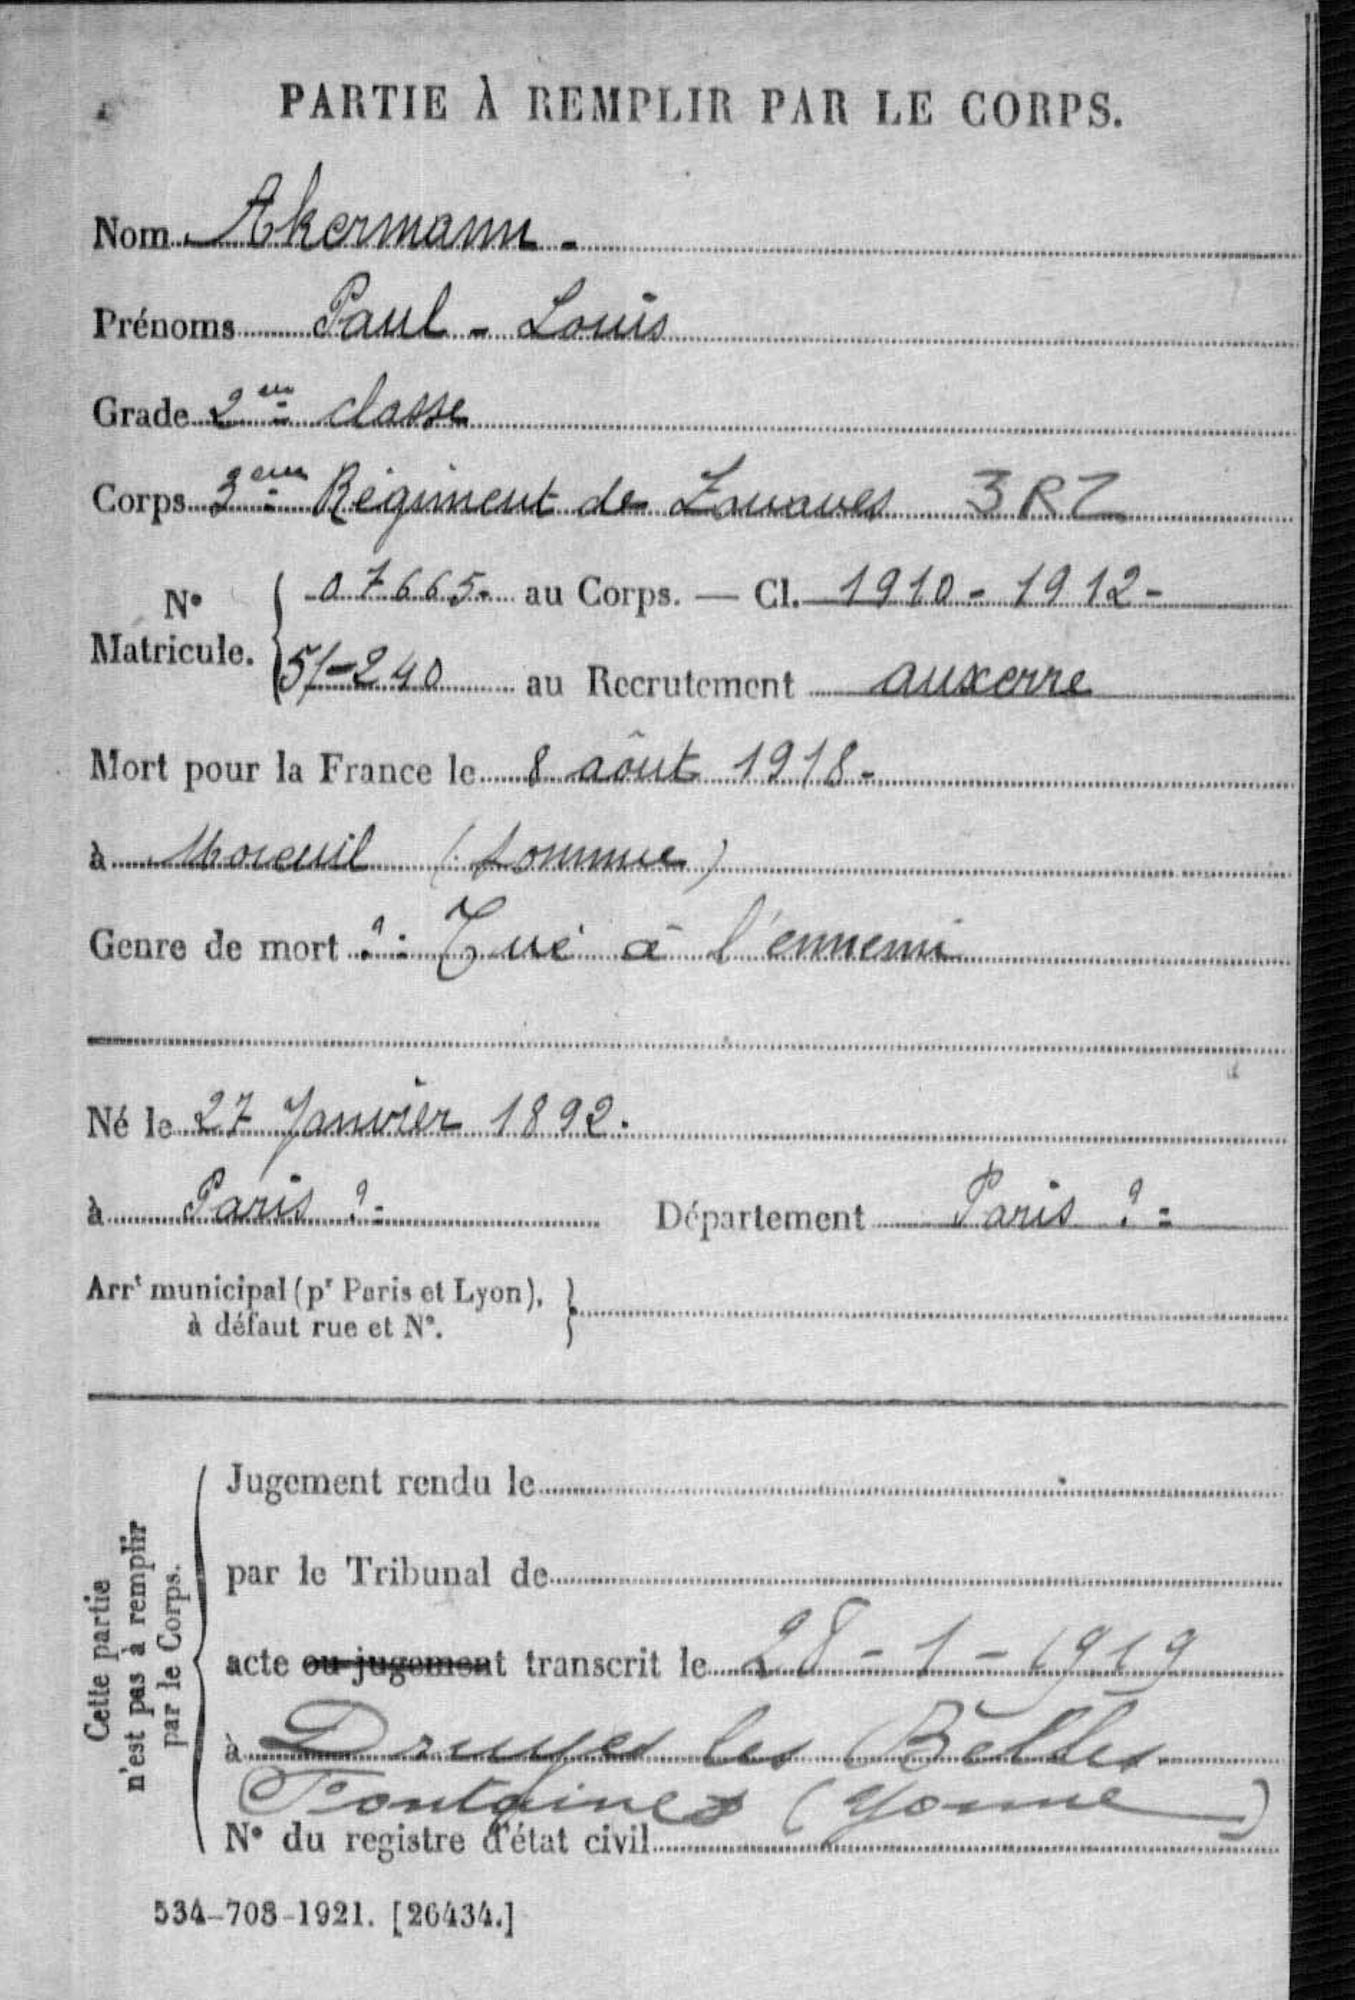 PARTIE À REMPLIR PAR LE CORPS.
Nom Akermann -
Prénoms Paul - Louis
Grade 2em classe
Corps 3em Régiment de Zouaves 3RZ
No Matricule. { 07665. au Corps. — Cl. 1910 - 1912 -
51-240 au Recrutement auxerre
Mort pour la France le 8 aôut 1918 -
à Moreuil (Somme)
Genre de mort ?: Tué à l'ennemi
Né le 27 Janvier 1892.
à Paris ?= Département Paris ?=
Arrt municipal (pr Paris et Lyon), }
à défaut rue et No.
Cette partie
n'est pas à remplir
par le Corps.
Jugement rendu le
par le Tribunal de
acte ou jugement transcrit le 28 - 1 - 1919
à Druyes les Belles
Fontaines (Yonne)
No du registre d'état civil
534-708-1921. [26434.]